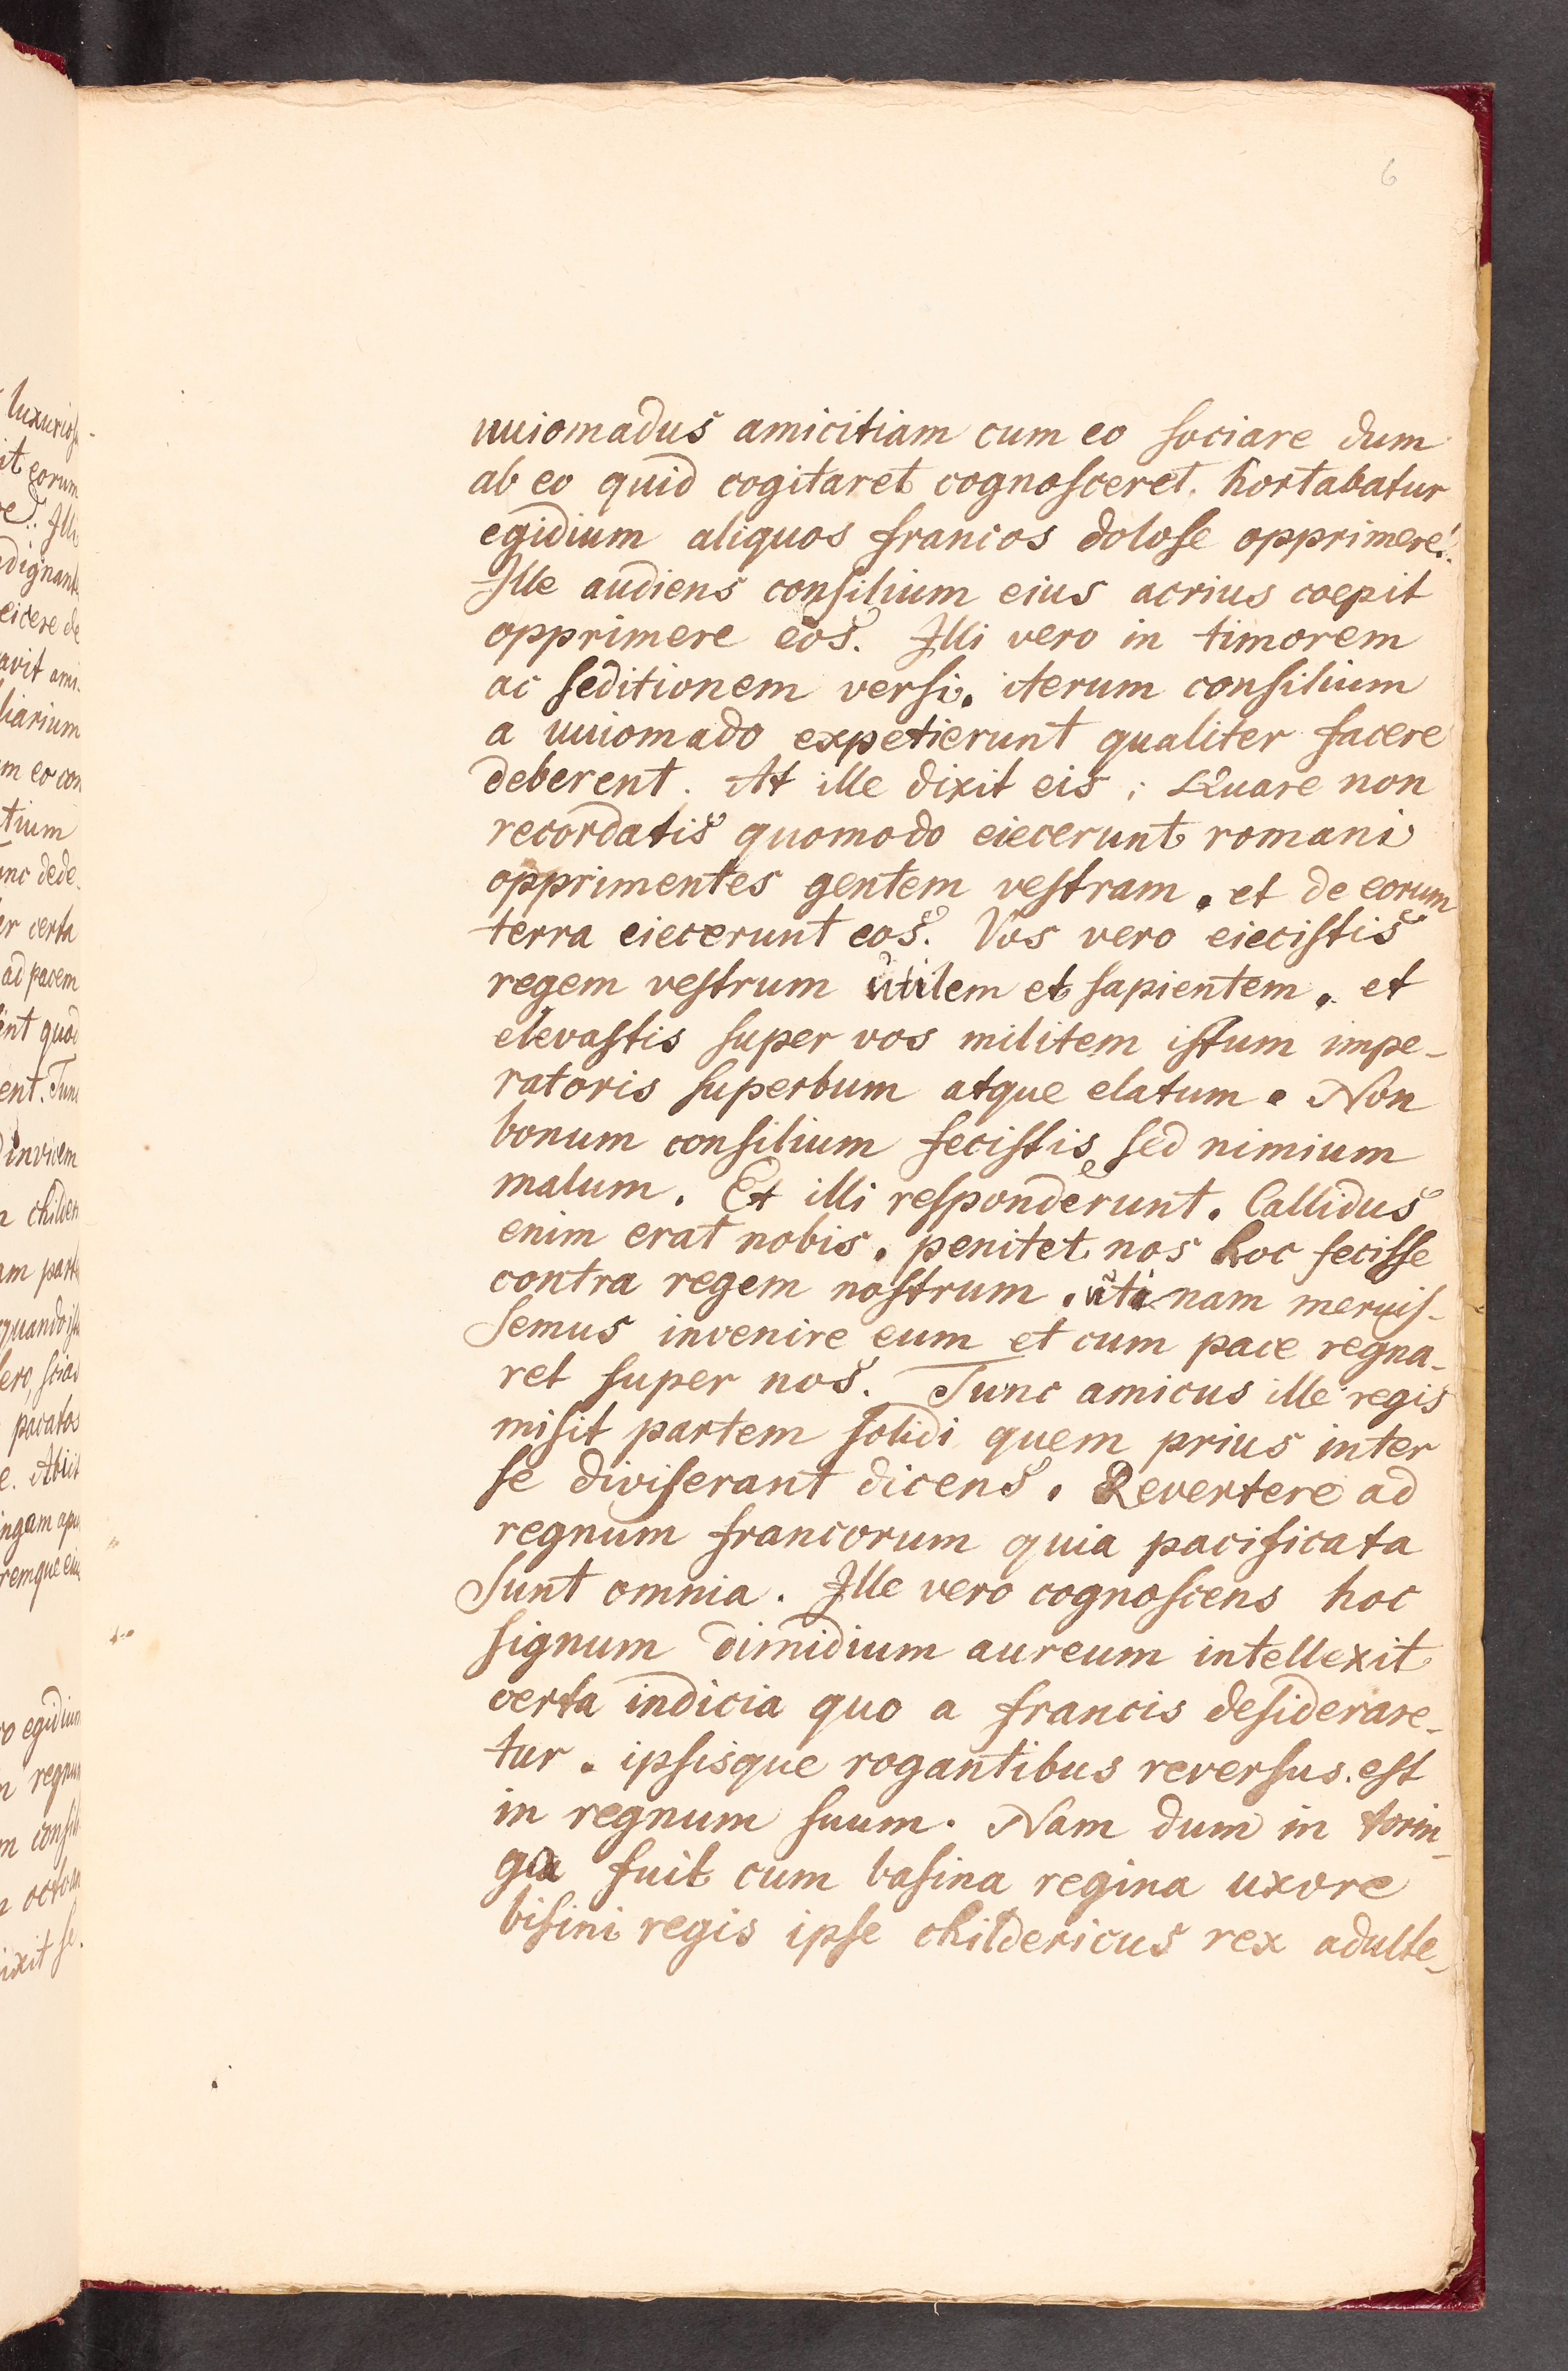 6
uuiomadus amicitiam cum eo sociare dum
ab eo quid cogitaret cognosceret. hortabatur
egidium aliquos francos dolose opprimere.
Ille audiens consilium eius acrius coepit
opprimere eos. Illi vero in timorem
ac seditionem versi. iterum consilium
a uuiomado expetierunt qualiter facere
deberent. At ille dixit eis; Quare non
recordatis quomodo eiecerunt romani
opprimentes gentem vestram. et de eorum
terra eiecerunt eos. Vos vero eiecistis
regem vestrum utilem et sapientem. et
elevastis super vos militem istum impe-
ratoris superbum atque elatum. Non
bonum consilium fecistis sed nimium
malum. Et illi responderunt. Callidus
enim erat nobis. penitet nos hoc fecisse
contra regem nostrum. utinam meruis-
semus invenire eum et cum pace regna-
ret super nos. Tunc amicus ille regis
misit partem solidi quem prius inter
se diviserant dicens. Revertere ad
regnum francorum quia pacificata
sunt omnia. Ille vero cognoscens hoc
signum dimidium aureum intellexit
certa indicia quo a francis desiderare-
tur. ipsisque rogantibus reversus est
in regnum suum. Nam dum in torin-
gia fuit cum basina regina uxore
bisini regis ipse childericus rex adulte-